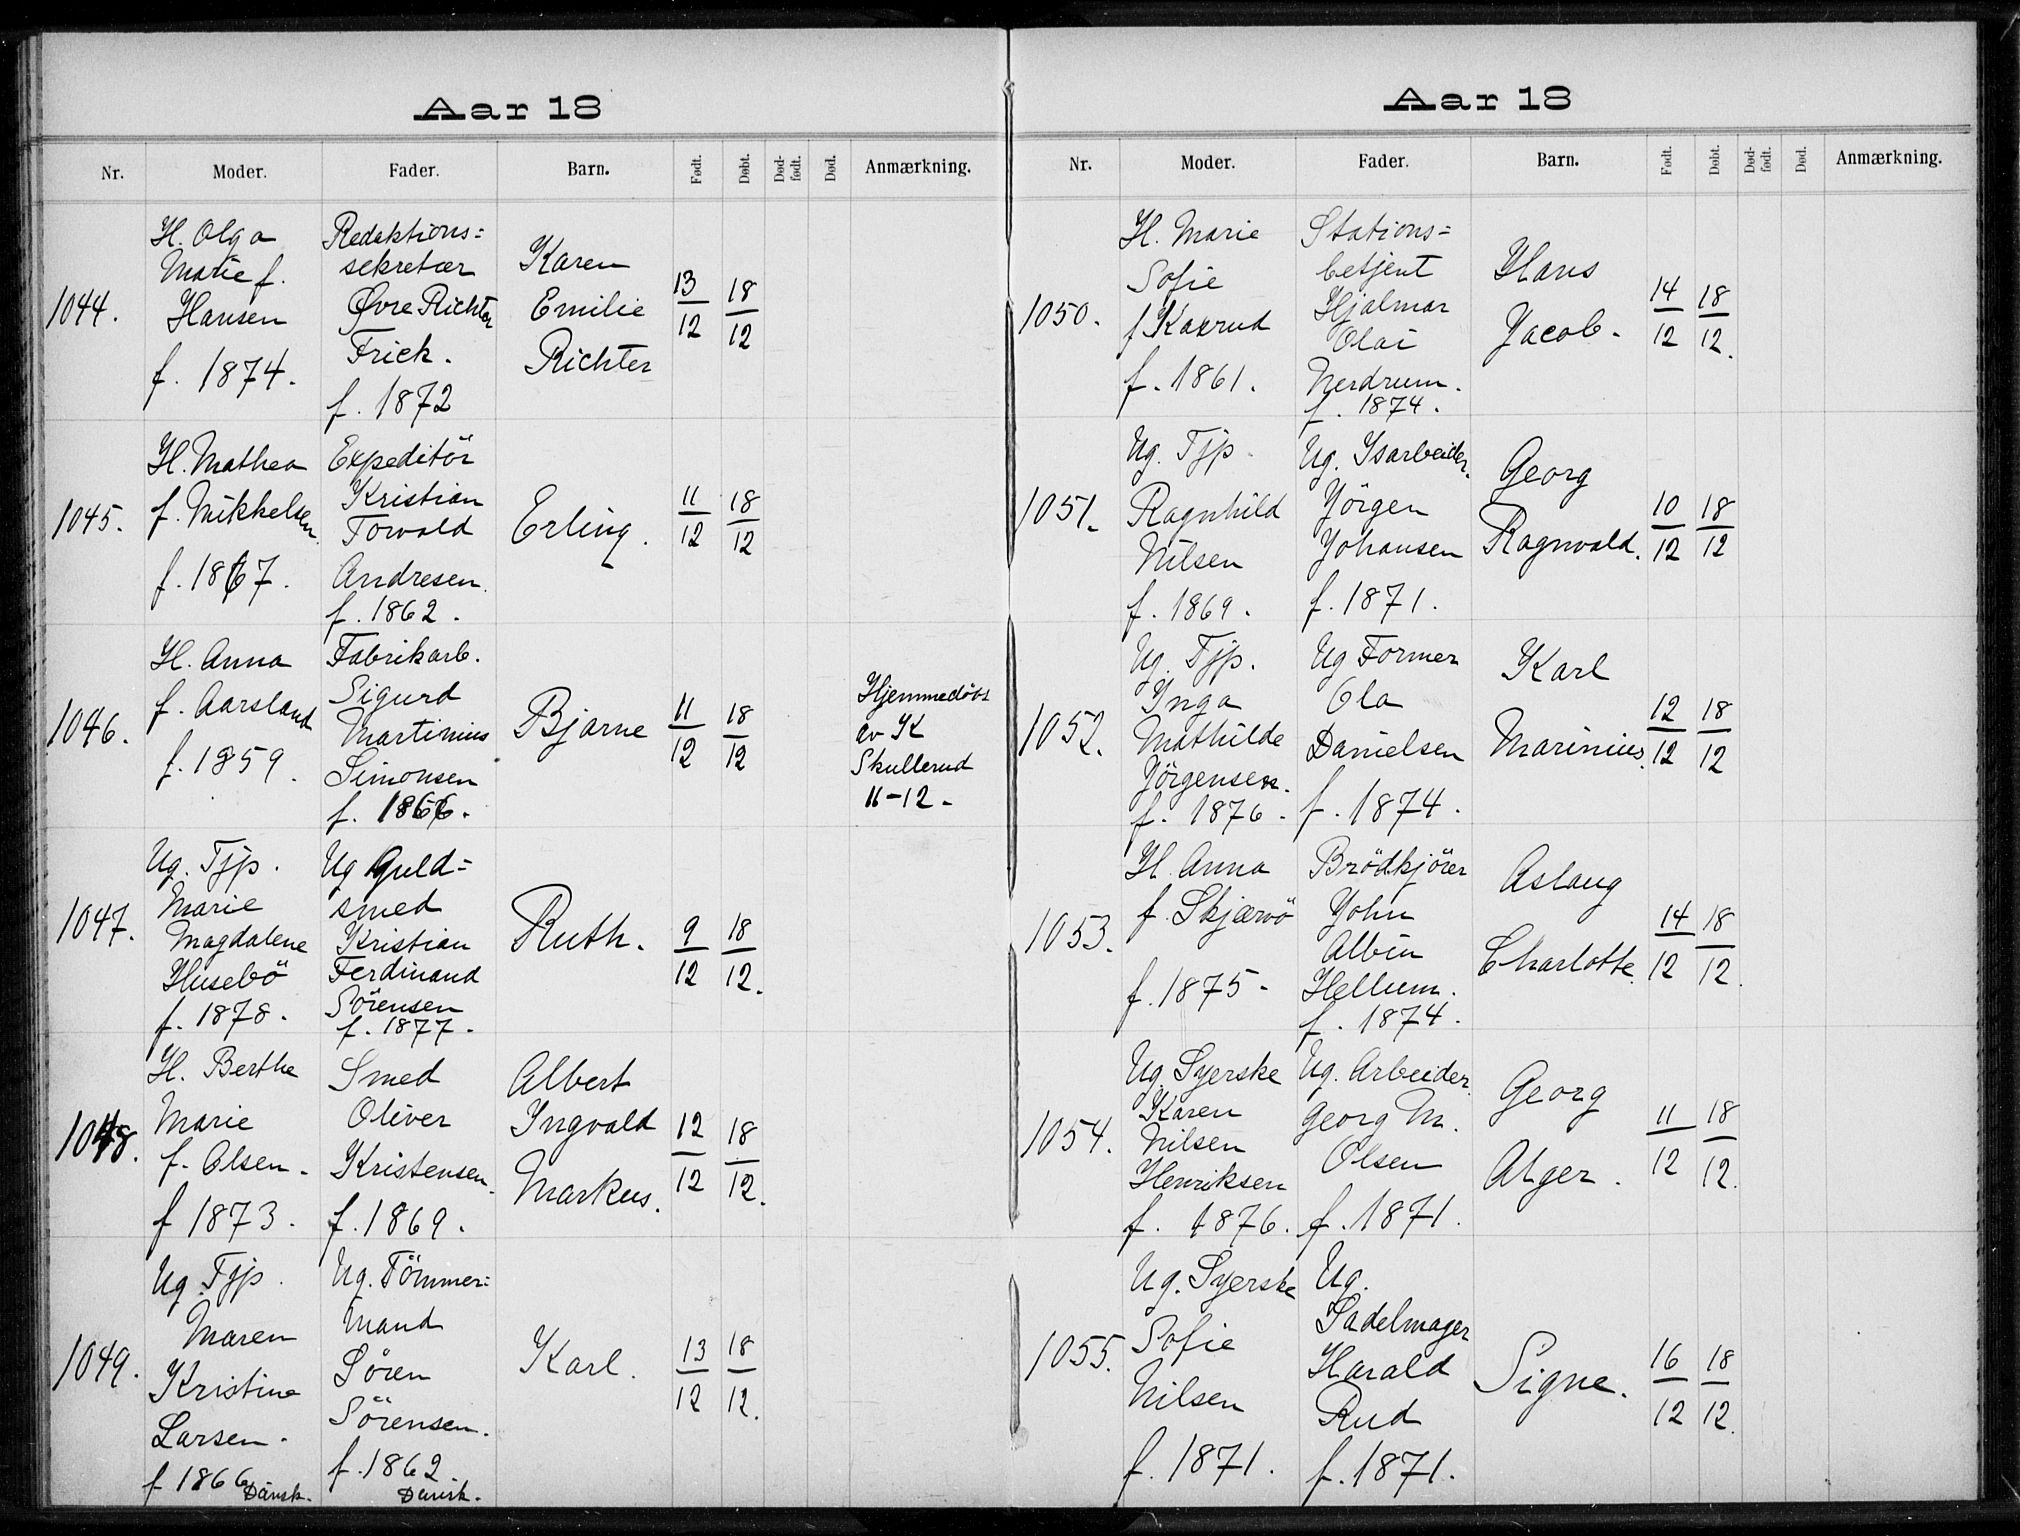 Aar 18
Nr. Moder. Fader. Barn. Født. Døbt. Død-født. Død. Anmærkning.
1044.
H. Olga
Marie f.
Hansen
f. 1874.
Redaktions=
sekretær
Øvre Richter
Frich.
f. 1872
Karen
Emilie
Richter
13/12 18/12
1045.
H. Mathea
f. Mikkelsen
f. 1867.
Expeditör
Kristian
Torvald
Andresen
f. 1862.
Erling.
11/12 18/12
1046.
H. Anna
f. Aarsland
f. 1859.
Fabrikarb.
Sigurd
Martinius
Simonsen
f. 1866.
Bjarne
11/12 18/12
Hjemmedöbt
av K
Skullerud
11-12.
1047.
Ug. Tjp.
Marie
Magdalene
Husebö
f. 1878.
Ug Guld=
smed
Kristian
Ferdinand
Sörensen
f. 1877.
Ruth.
9/12 18/12.
1048.
H. Berthe
Marie
f. Olsen.
f 1873.
Smed
Oliver
Kristensen.
f. 1869.
Albert
Ingvald
Markus.
12/12 18/12.
1049.
Ug. Tjp.
Maren
Kristine
Larsen.
f 1866 Dansk.
Ug. Tömmer=
mand
Sören
Sörensen.
f. 1862
Dansk.
Karl.
13/12 18/12.
Aar 18
Nr. Moder. Fader. Barn. Født. Døbt. Død-født. Død. Anmærkning.
1050.
H. Marie
Sofie
f Kaxrud
f. 1861.
Stations=
betjent
Hjalmar
Olai
Nerdrum.
f. 1874.
Hans
Jacob.
14/12 18/12.
1051.
Ug. Tjp.
Ragnhild
Nilsen
f. 1869.
Ug. Isarbeider.
Jörgen
Johansen
f. 1871.
Georg
Ragnvald.
10/12 18/12
1052.
Ug. Tjp.
Inga
Mathilde
Jörgensen.
f. 1876.
Ug Former
Ola
Danielsen
f. 1874.
Karl
Marinius.
12/12 18/12
1053.
H. Anna
f. Skjærvö
f. 1875.
Brödkjörer
John
Albin
Hellum.
f. 1874.
Aslaug
Charlotte.
14/12 18/12.
1054.
Ug. Syerske
Karen
Nilsen
Henriksen
f. 1876.
Ug. Arbeider
Georg M.
Olsen
f. 1871.
Georg
Alger.
11/12 18/12.
1055.
Ug. Syerske
Sofie
Nilsen
f. 1871.
Ug.
Sadelmager
Harald
Rud
f. 1871.
Signe.
16/12 18/12.